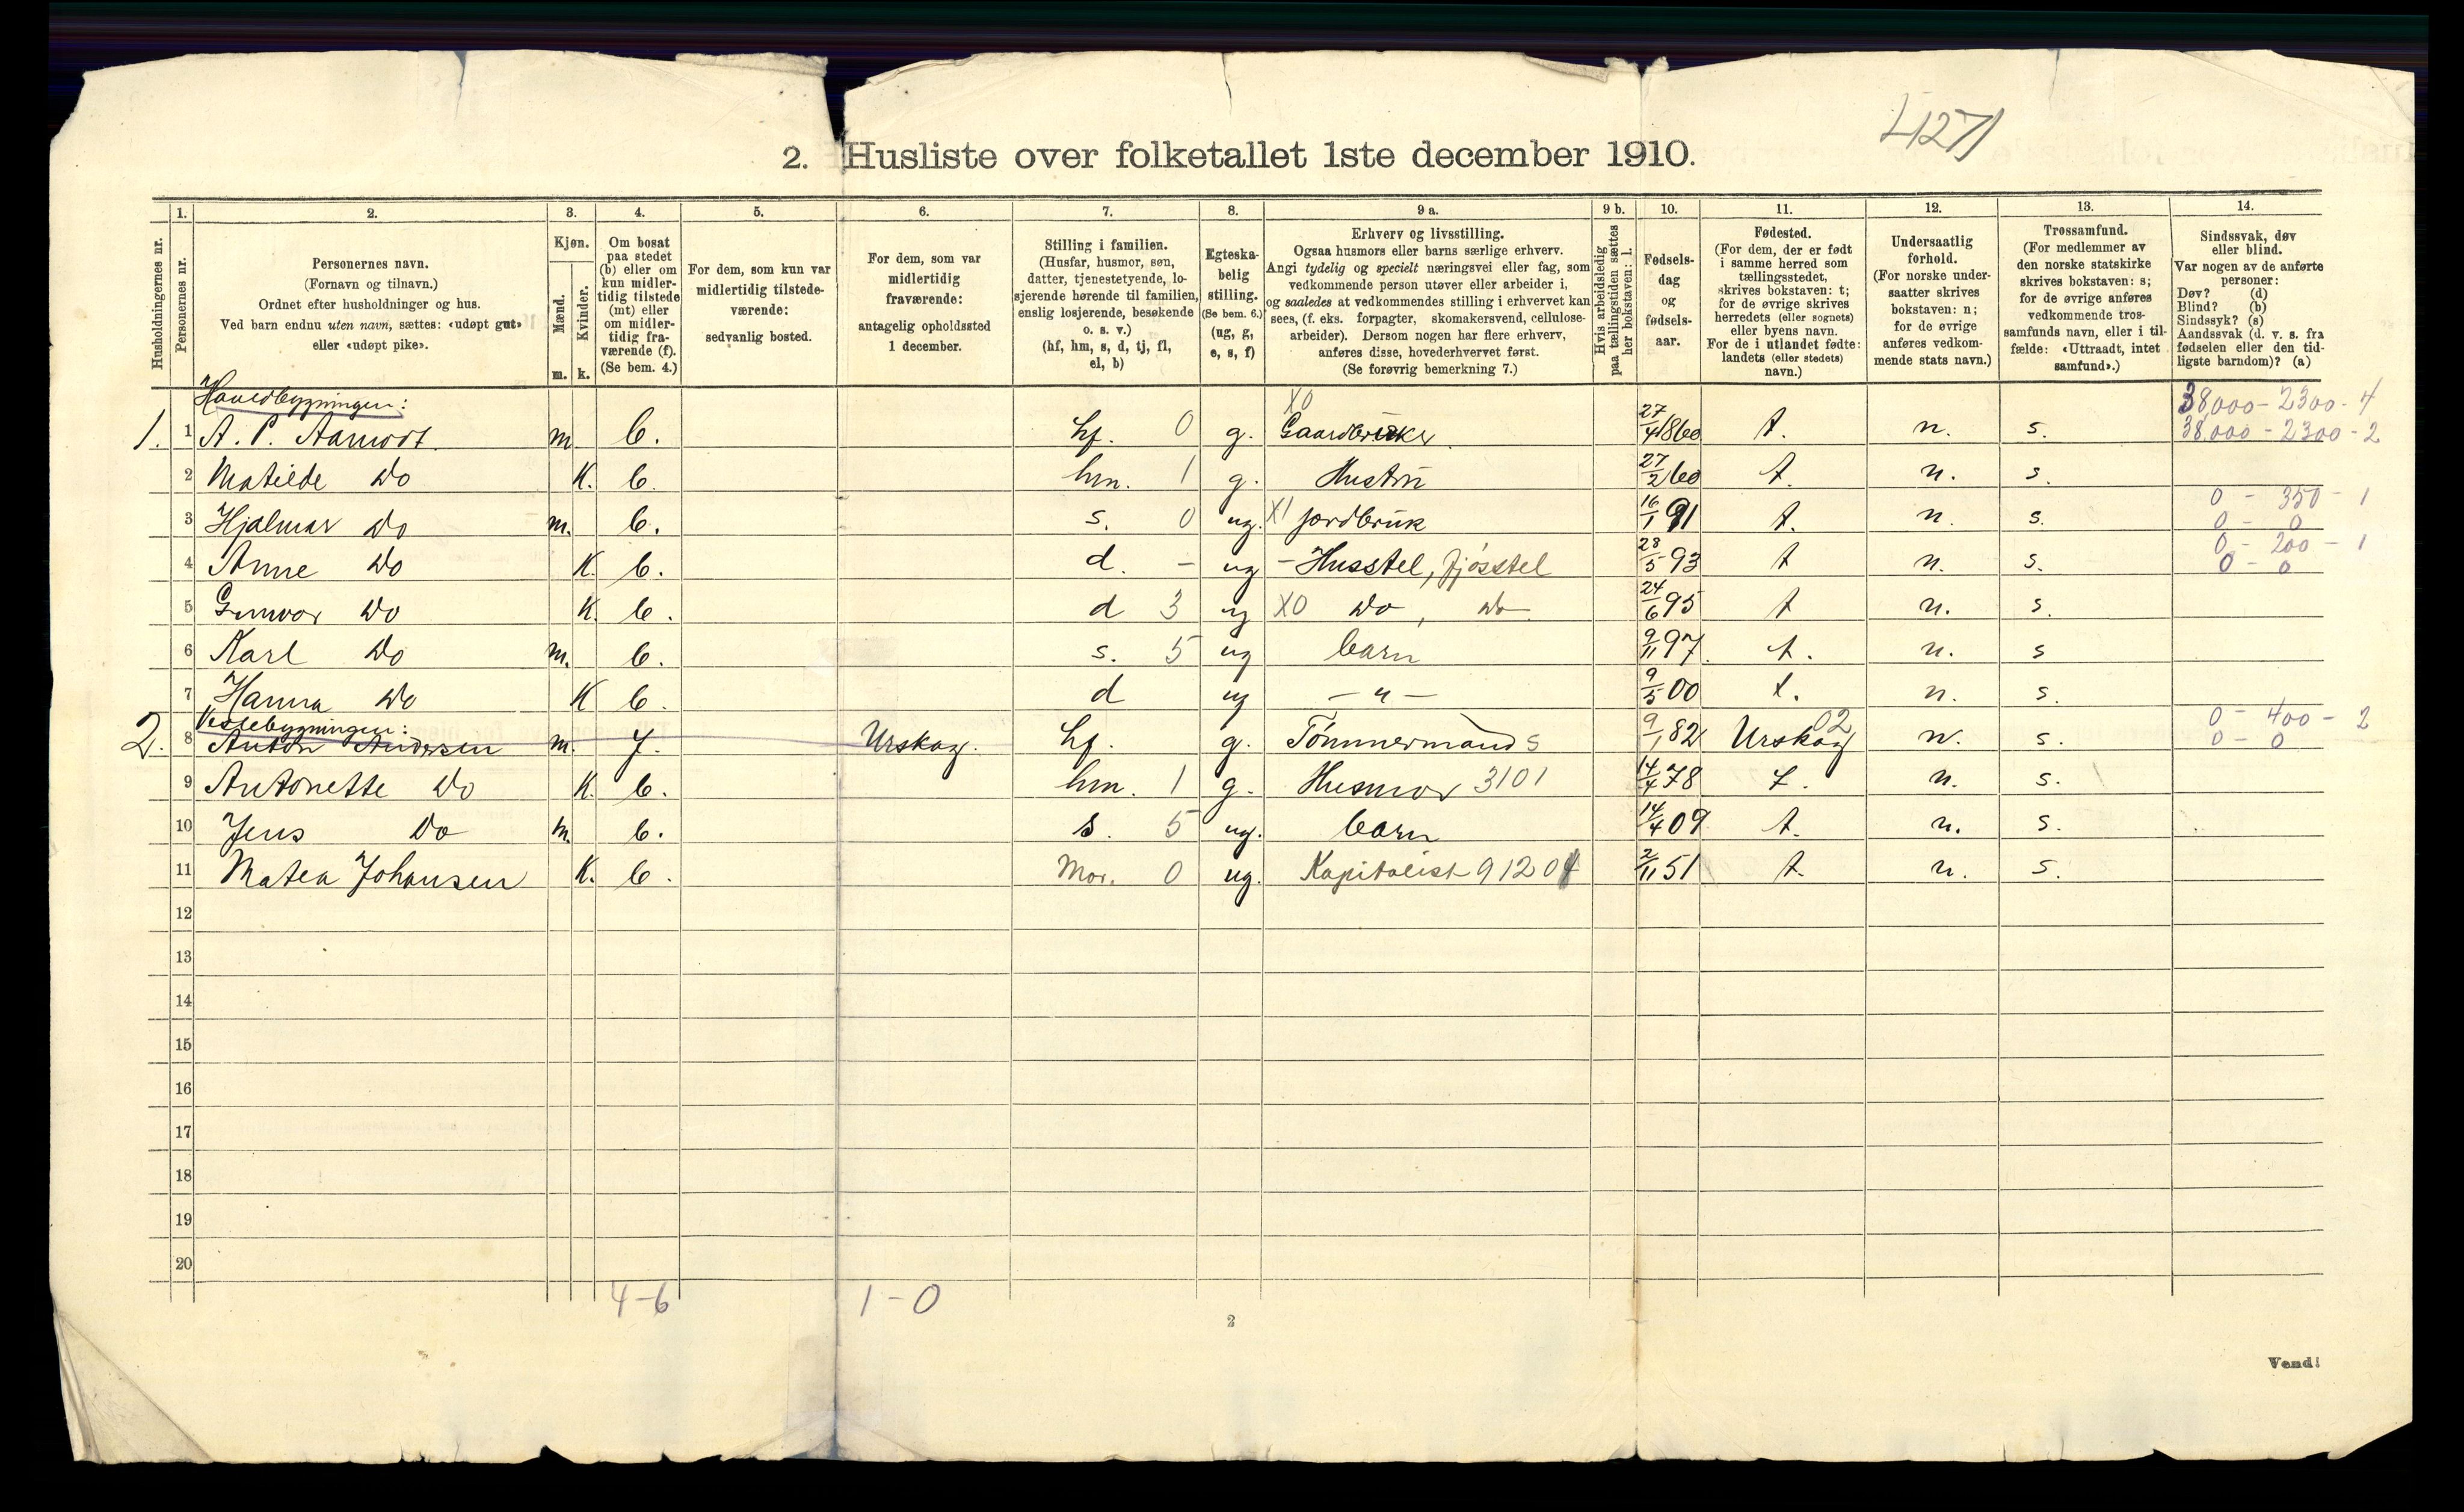 L127)
2. Husliste over folketallet 1ste december 1910.
Husholdningernes nr.
1.
Personernes nr.
2.
Personernes navn.
(Fornavn og tilnavn.)
Ordnet efter husholdninger og hus.
Ved barn endnu uten navn, sættes: «udøpt gut»
eller «udøpt pike».
3.
Kjøn.
Mænd.
Kvinder.
m. k.
4.
Om bosat
paa stedet
(b) eller om
kun midler-
tidig tilstede
(mt) eller
om midler-
tidig fra-
værende (f).
(Se bem. 4.)
5.
For dem, som kun var
midlertidig tilstede-
værende:
sedvanlig bosted.
6.
For dem, som var
midlertidig
fraværende:
antagelig opholdssted
1 december.
7.
Stilling i familien.
(Husfar, husmor, søn,
datter, tjenestetyende, lo-
sjerende hørende til familien,
enslig losjerende, besøkende
o. s. v.)
(hf, hm, s, d, tj, fl,
el, b)
8.
Egteska-
belig
stilling.
(Se bem. 6.)
(ug, g,
e, s, f)
9 a.
Erhverv og livsstilling.
Ogsaa husmors eller barns særlige erhverv.
Angi tydelig og specielt næringsvei eller fag, som
vedkommende person utøver eller arbeider i,
og saaledes at vedkommendes stilling i erhvervet kan
sees, (f. eks. forpagter, skomakersvend, cellulose-
arbeider). Dersom nogen har flere erhverv,
anføres disse, hovederhvervet først.
(Se forøvrig bemerkning 7.)
9 b.
Hvis arbeidsledig
paa tællingstiden sættes
her bokstaven: l.
10.
Fødsels-
dag
og
fødsels-
aar.
11.
Fødested.
(For dem, der er født
i samme herred som
tællingsstedet,
skrives bokstaven: t;
for de øvrige skrives
herredets (eller sognets)
eller byens navn.
For de i utlandet fødte:
landets (eller stedets)
navn.)
12.
Undersaatlig
forhold.
(For norske under-
saatter skrives
bokstaven: n;
for de øvrige
anføres vedkom-
mende stats navn.)
13.
Trossamfund.
(For medlemmer av
den norske statskirke
skrives bokstaven: s;
for de øvrige anføres
vedkommende tros-
samfunds navn, eller i til-
fælde: «Uttraadt, intet
samfund».)
14.
Sindssvak, døv
eller blind.
Var nogen av de anførte
personer:
Døv? (d)
Blind? (b)
Sindssyk? (s)
Aandssvak (d. v. s. fra
fødselen eller den tid-
ligste barndom)? (a)
Hovedbygningen: X0 38,000 - 2300 - 4
1. 1 A. P. Aamodt. m b. hf. 0 g. Gaardbruker 27/4 1860 t. n. s. 38,000 - 2300 - 2
2 Matilde Do K. b. hm. 1 g. Hustru 27/2 60 t. n. s.
0 - 350 - 1
3 Hjalmar Do m. b. s. 0 ug. X1 jordbruk 16/1 91 t. n. s. 0 - 0
0 - 200 - 1
4 Anne Do K. b. d. - ug - Husstel, fjøsstel 28/5 93 t n. s. 0 - 0
5 Gunvor Do K. b. d 3 ug X0 Do, Do 24/6 95 t n. s.
6 Karl Do m. b. s. 5 ug barn 9/11 97. t. n. s
7 Hanna Do K b. d ug - " - 9/5 00 t. n. s.
Vestebygningen: 02 0 - 400 - 2
2. 8 Anton Andersen m. f. Urskog. hf. g. Tömmermand s 9/1 82 Urskog n. s. 0 - 0
9 Antonette Do K. b. hm. 1 g. Husmor 3101 14/4 78 t. n. s.
10 Jens Do m. b. s. 5 ug. barn 14/4 09 t. n. s.
11 Matea Johansen K. b. Mor. 0 ug. Kapitalist 91204 2/11 51 t. n. s.
12
13
14
15
16
17
18
19
20
4-6 1-0
2
Vend!